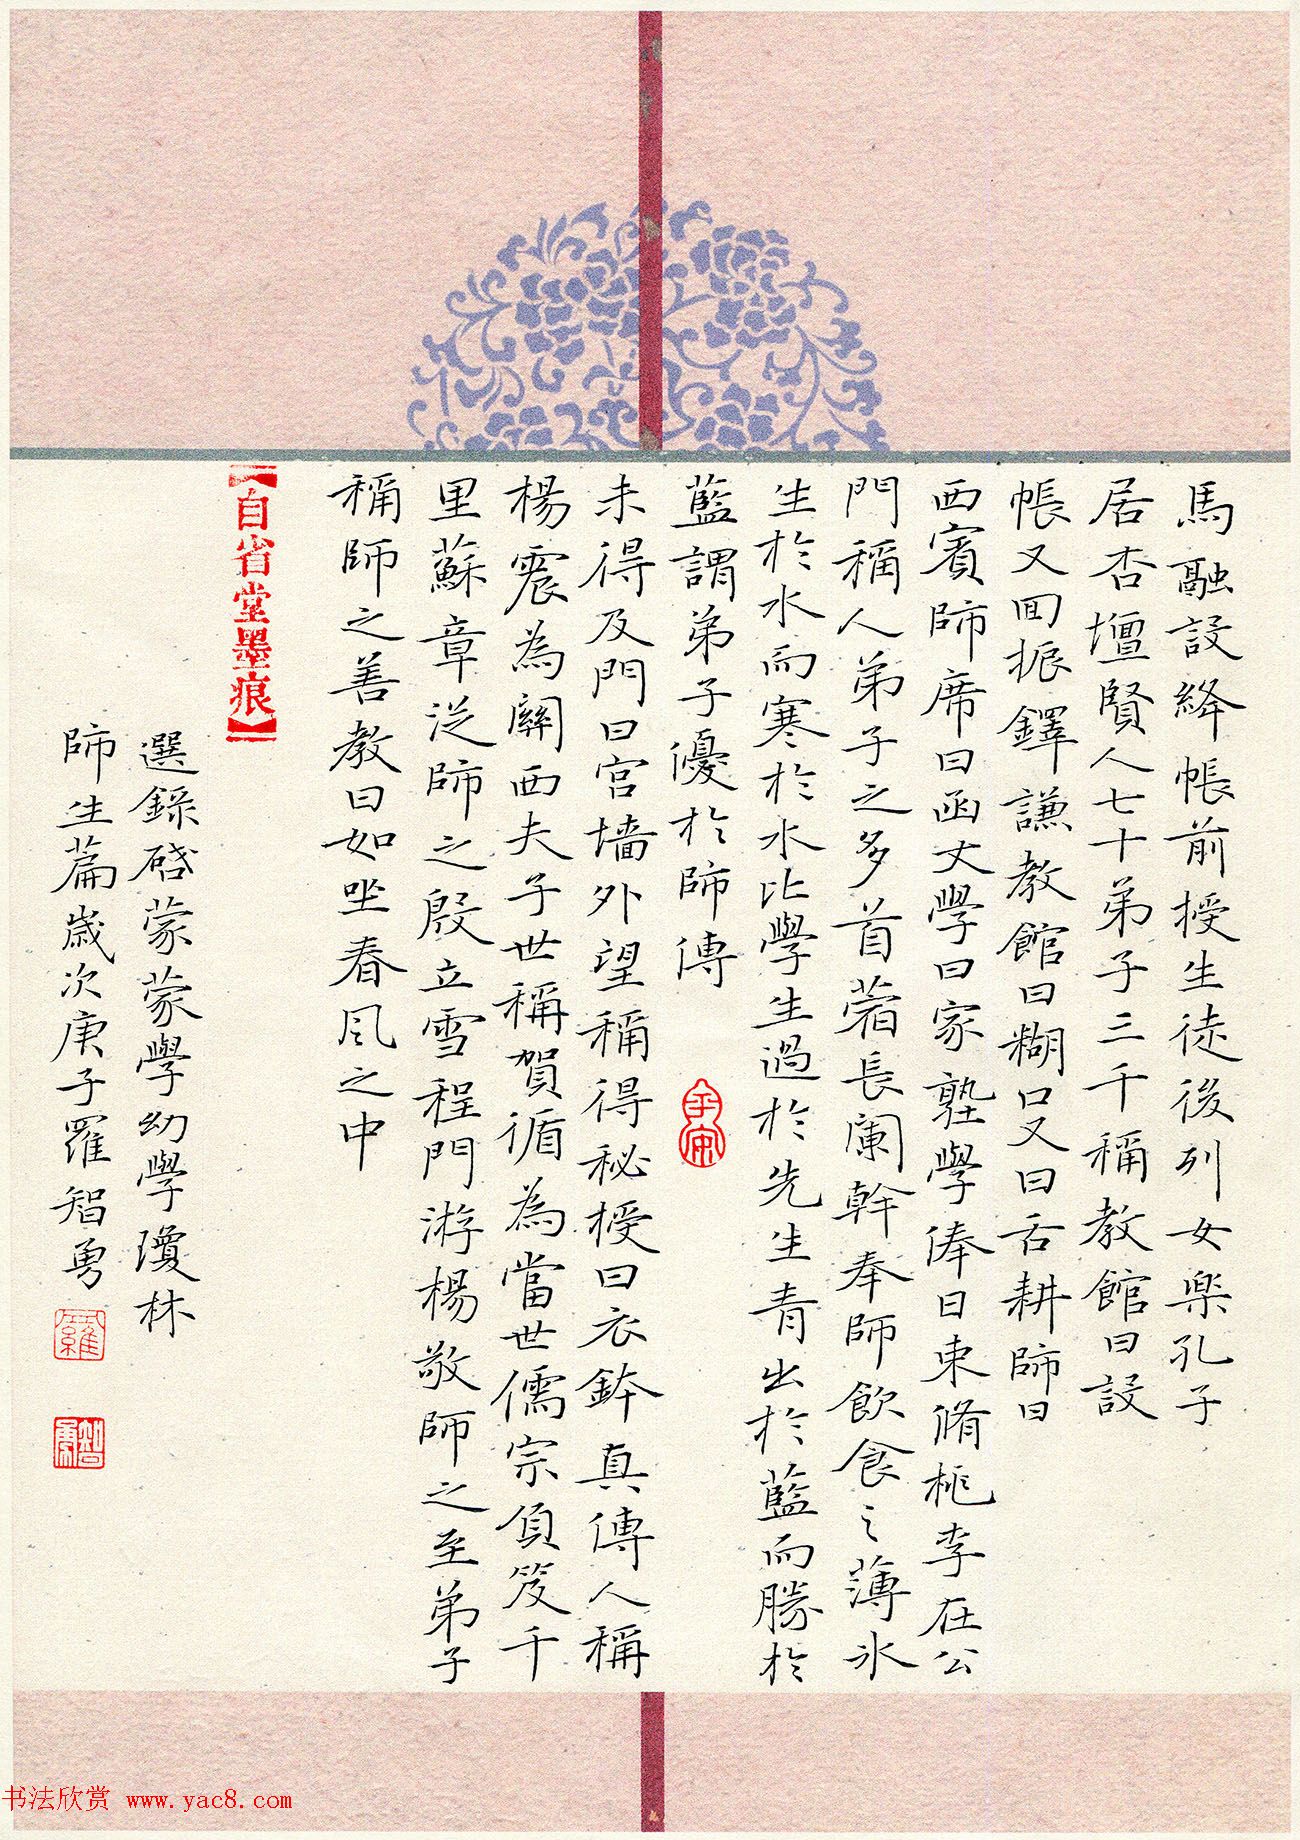 馬融設絳帳前授生徒後列女樂孔子
居杏壇賢人七十弟子三千稱教館曰設
帳又囬振鐸謙教館曰糊口又曰舌耕師曰
西賓師席曰函丈學曰家塾學俸曰束脩桃李在公
門稱人弟子之多首蓿長闌幹奉師飲食之薄冰
生於水而寒於水比學生過於先生青出於藍而勝於
藍謂弟子優於師傅
未得及門曰宮墻外望稱得秘授曰衣鉢真傳人稱
楊震為關西夫子世稱賀循為當世儒宗負笈千
里蘇章從師之殷立雪程門游楊敬師之至弟子
稱師之善教曰如坐春風之中
【自省堂墨痕】
選錄啓蒙蒙學幼學瓊林
師生篇歲次庚子羅智勇
羅
智勇
书法欣赏 www.yac8.com